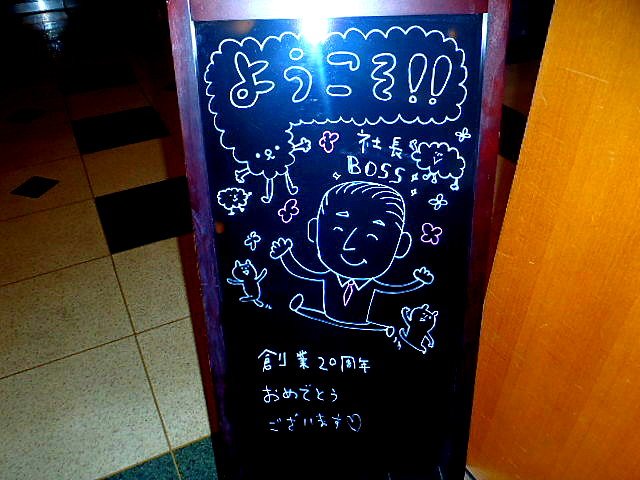 ようこそ!!
社長
BOSS
創業20周年
おめでとう
ございます♡